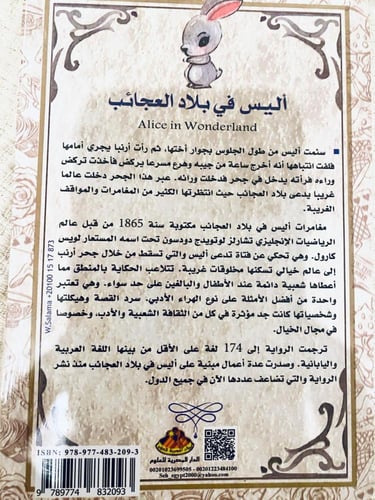 أليس في بلاد العجائب
Alice in Wonderland
▪ سئمت أليس من طول الجلوس بجوار أختها، ثم رأت أرنبا يجري أمامها
فلفت انتباهها أنه أخرج ساعة من جيبه وهرع مسرعا يركض فأخذت تركض
وراءه فرأته يدخل في جحر فدخلت ورائه. عبر هذا الجحر دخلت عالما
غريبا يدعى بلاد العجائب حيث انتظرتها الكثير من المغامرات والمواقف
الغريبة.
مغامرات أليس في بلاد العجائب مكتوبة سنة 1865 من قبل عالم
الرياضيات الإنجليزي تشارلز لوتويدج دودسون تحت اسمه المستعار لويس
كارول. وهي تحكي عن فتاة تدعى أليس والتي تسقط من خلال جحر أرنب
إلى عالم خيالي تسكنها مخلوقات غريبة. تتلاعب الحكاية بالمنطق مما
أعطاها شعبية دائمة عند الأطفال والبالغين على حد سواء. وهي تعتبر
واحدة من أفضل الأمثلة على نوع الهراء الأدبي. سرد القصة وهيكلتها
وشخصياتها كانت جد مؤثرة في كل من الثقافة الشعبية والأدب، وخصوصا
في مجال الخيال.
ترجمت الرواية إلى 174 لغة على الأقل من بينها اللغة العربية
واليابانية. وصدرت عدة أعمال مبنية على أليس في بلاد العجائب منذ نشر
الرواية والتي تضاعف عددها الآن في جميع الدول.
W.Salama +20100 15 17 873
ISBN: 978-977-483-209-3
9 789774 832093
الدار المصرية للعلوم
00201023699505 - 00201223484100
Seh_egypt2000@yahoo.com